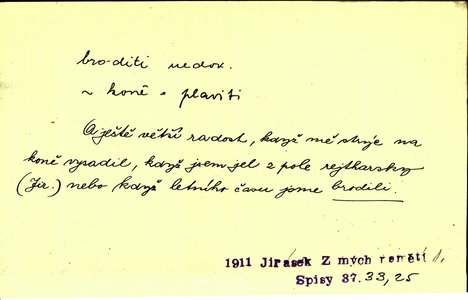 bro-diti nedok.
~ koně = plaviti
A ještě větší radost, když mě strýc na
koně vysadil, když jsem jel z pole rejtharsky
(Jir.) nebo když letního času jsme brodili.
1911 Jirásek Z mých pamětí 1.
Spisy 37. 33, 25